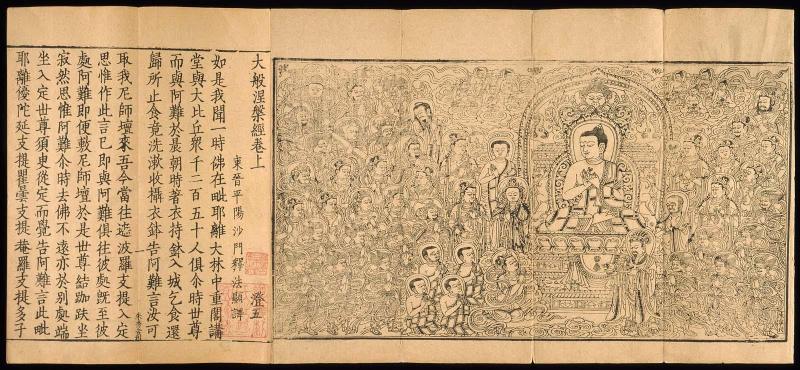 大般涅槃經卷上
東晉平陽沙門釋法顯譯
澄五
如是我聞一時佛在毗耶離大林中重閣講
堂與大比丘眾千二百五十人俱尒時世尊
而與阿難於晨朝時著衣持鉢入城乞食還
歸所止食竟洗漱收攝衣鉢告阿難言汝可
取我尼師壇來吾今當往遮波羅支提入定
思惟作此言已即與阿難俱往彼處既至彼
處阿難即便敷尼師壇於是世尊結跏趺坐
寂然思惟阿難尒時去佛不遠亦於別處端
坐入定世尊須臾從定而覺告阿難言此毗
耶離優陀延支提瞿曇支提菴羅支提多子